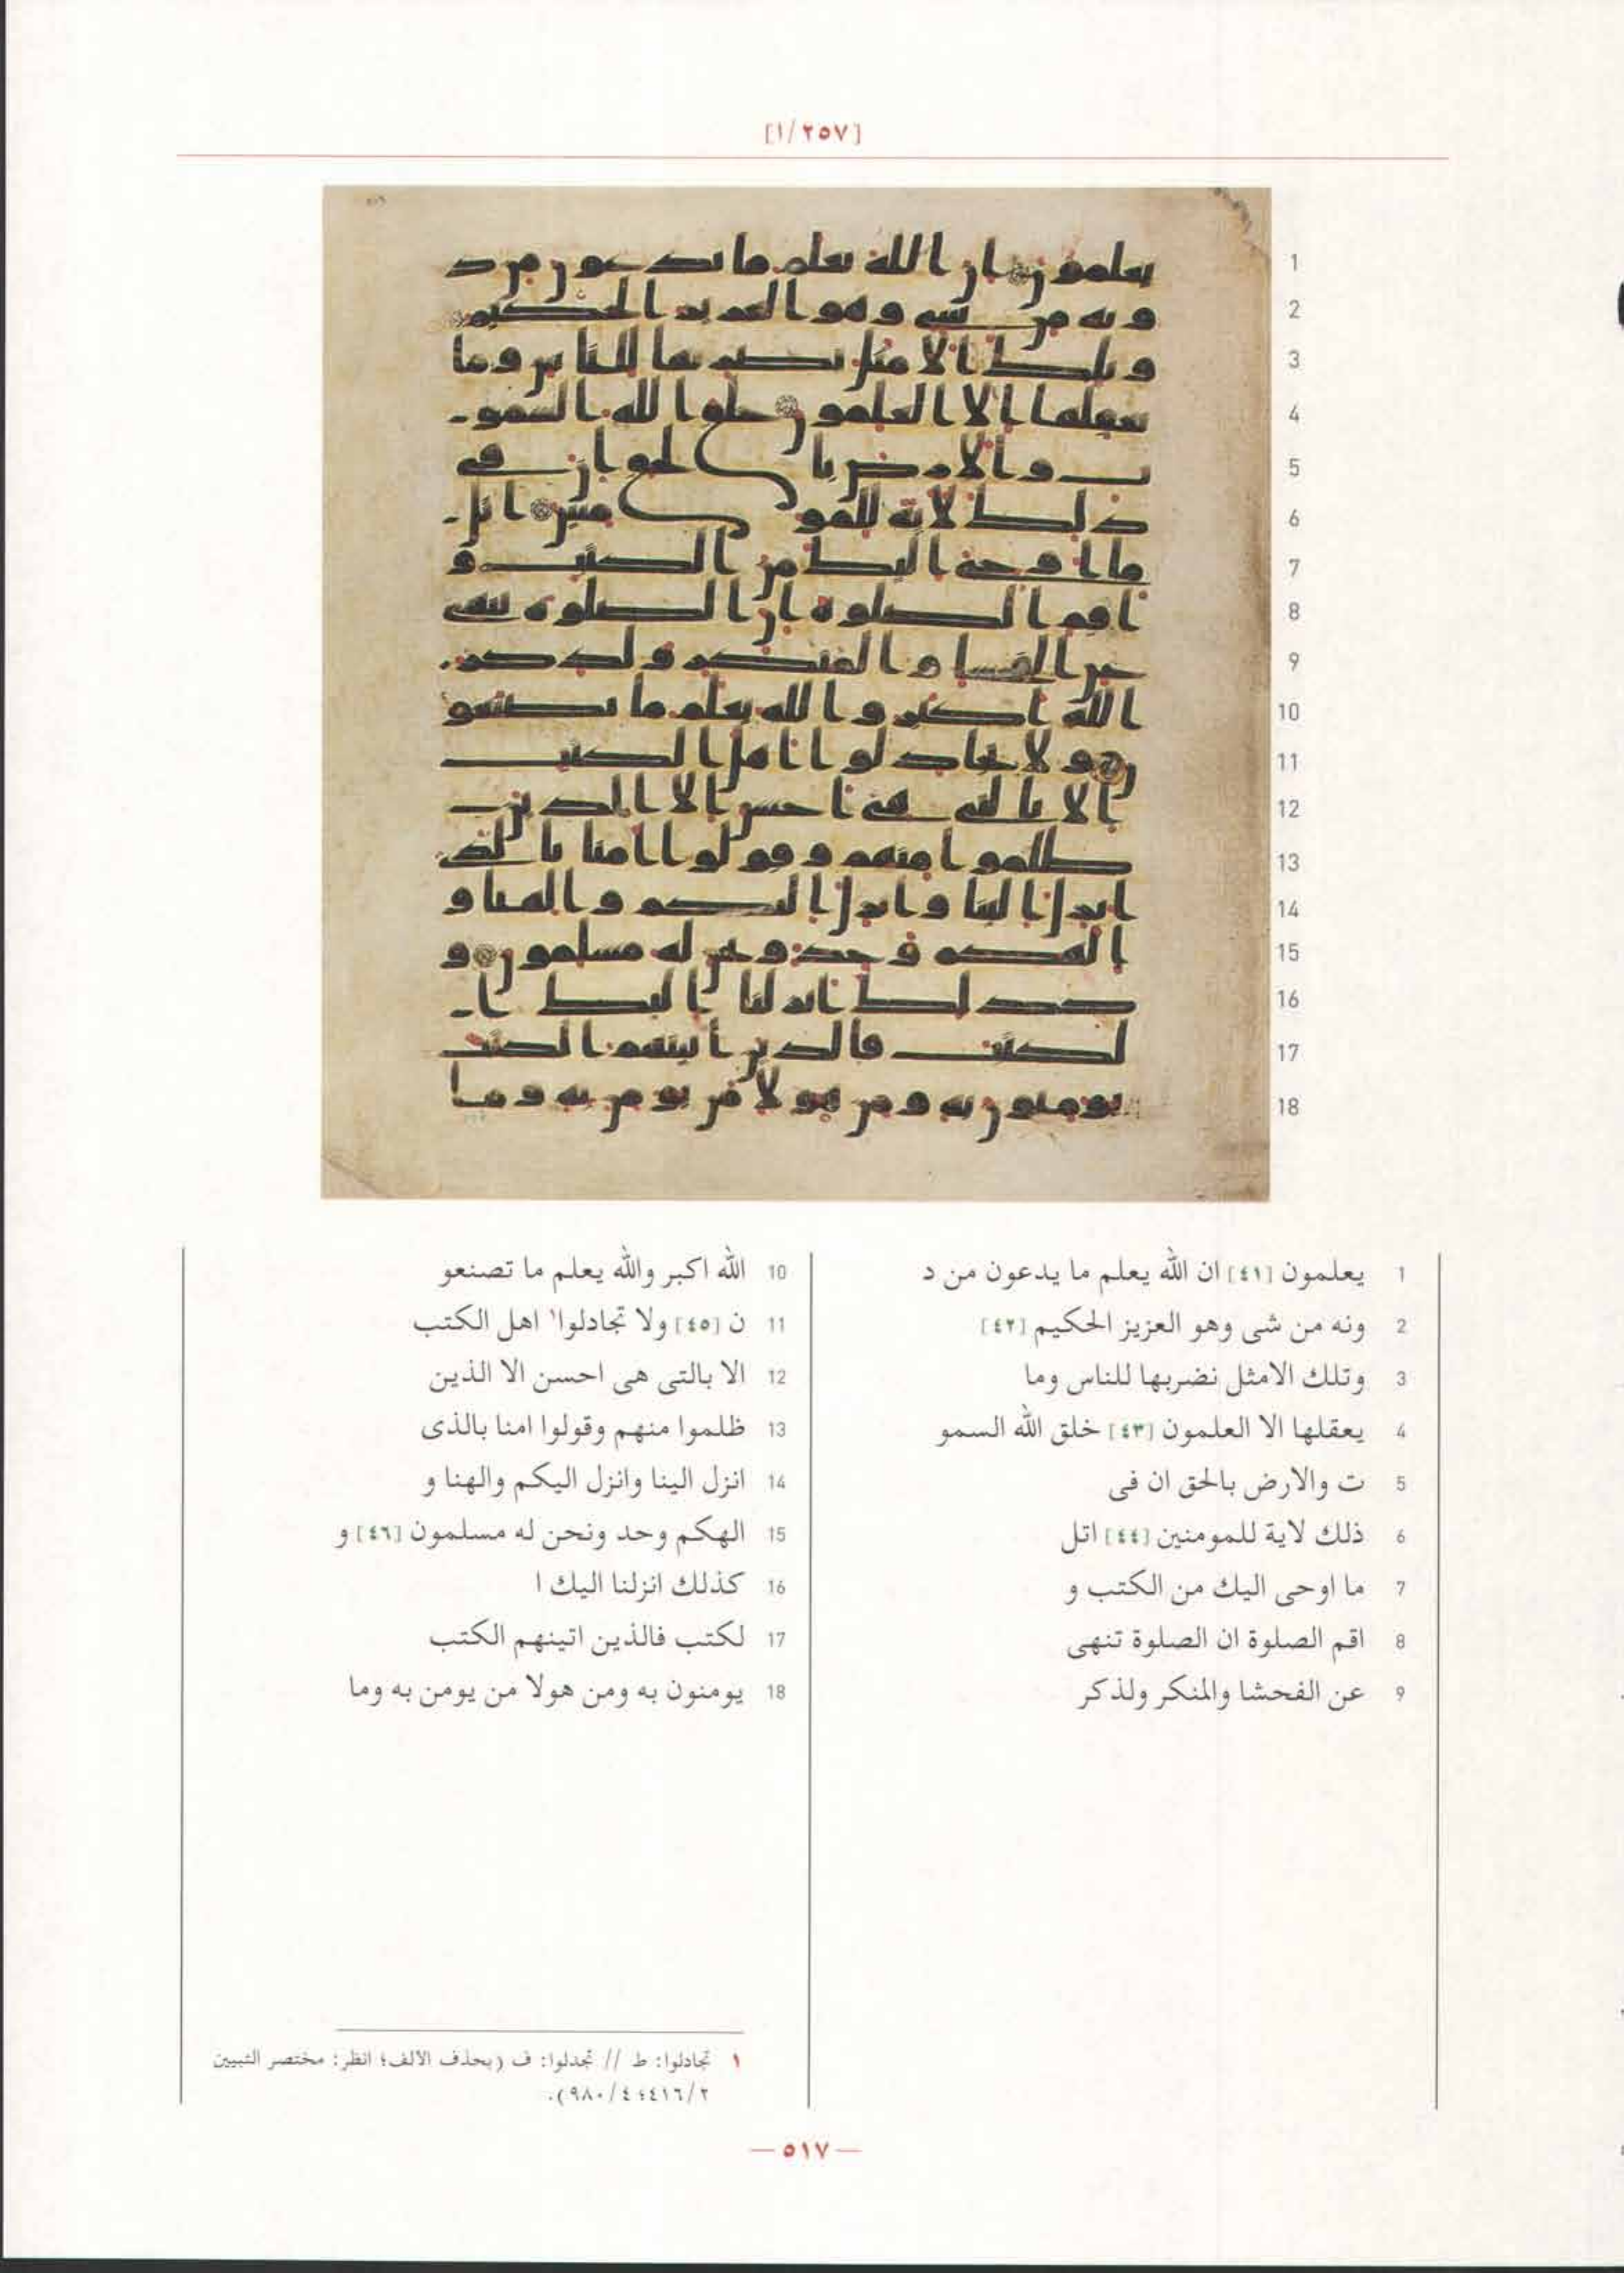 [١/٢٥٧]
1 يعلمون [٤١] ان الله يعلم ما يدعون من د
2 ونه من شى وهو العزيز الحكيم [٤٢]
3 وتلك الامثل نضربها للناس وما
4 يعقلها الا العلمون [٤٣] خلق الله السمو
5 ت والارض بالحق ان فى
6 ذلك لاية للمومنين [٤٤] اتل
7 ما اوحى اليك من الكتب و
8 اقم الصلوة ان الصلوة تنهى
9 عن الفحشا والمنكر ولذكر
10 الله اكبر والله يعلم ما تصنعو
11 ن [٤٥] ولا تجادلوا١ اهل الكتب
12 الا بالتى هى احسن الا الذين
13 ظلموا منهم وقولوا امنا بالذى
14 انزل الينا وانزل اليكم والهنا و
15 الهكم وحد ونحن له مسلمون [٤٦] و
16 كذلك انزلنا اليك ا
17 لكتب فالذين اتينهم الكتب
18 يومنون به ومن هولا من يومن به وما
١ تجادلوا: ط // تجدلوا: ف (بحذف الألف؛ انظر: مختصر التبيين
٢/٤١٦؛ ٤/٩٨٠).
— ٥١٧ —